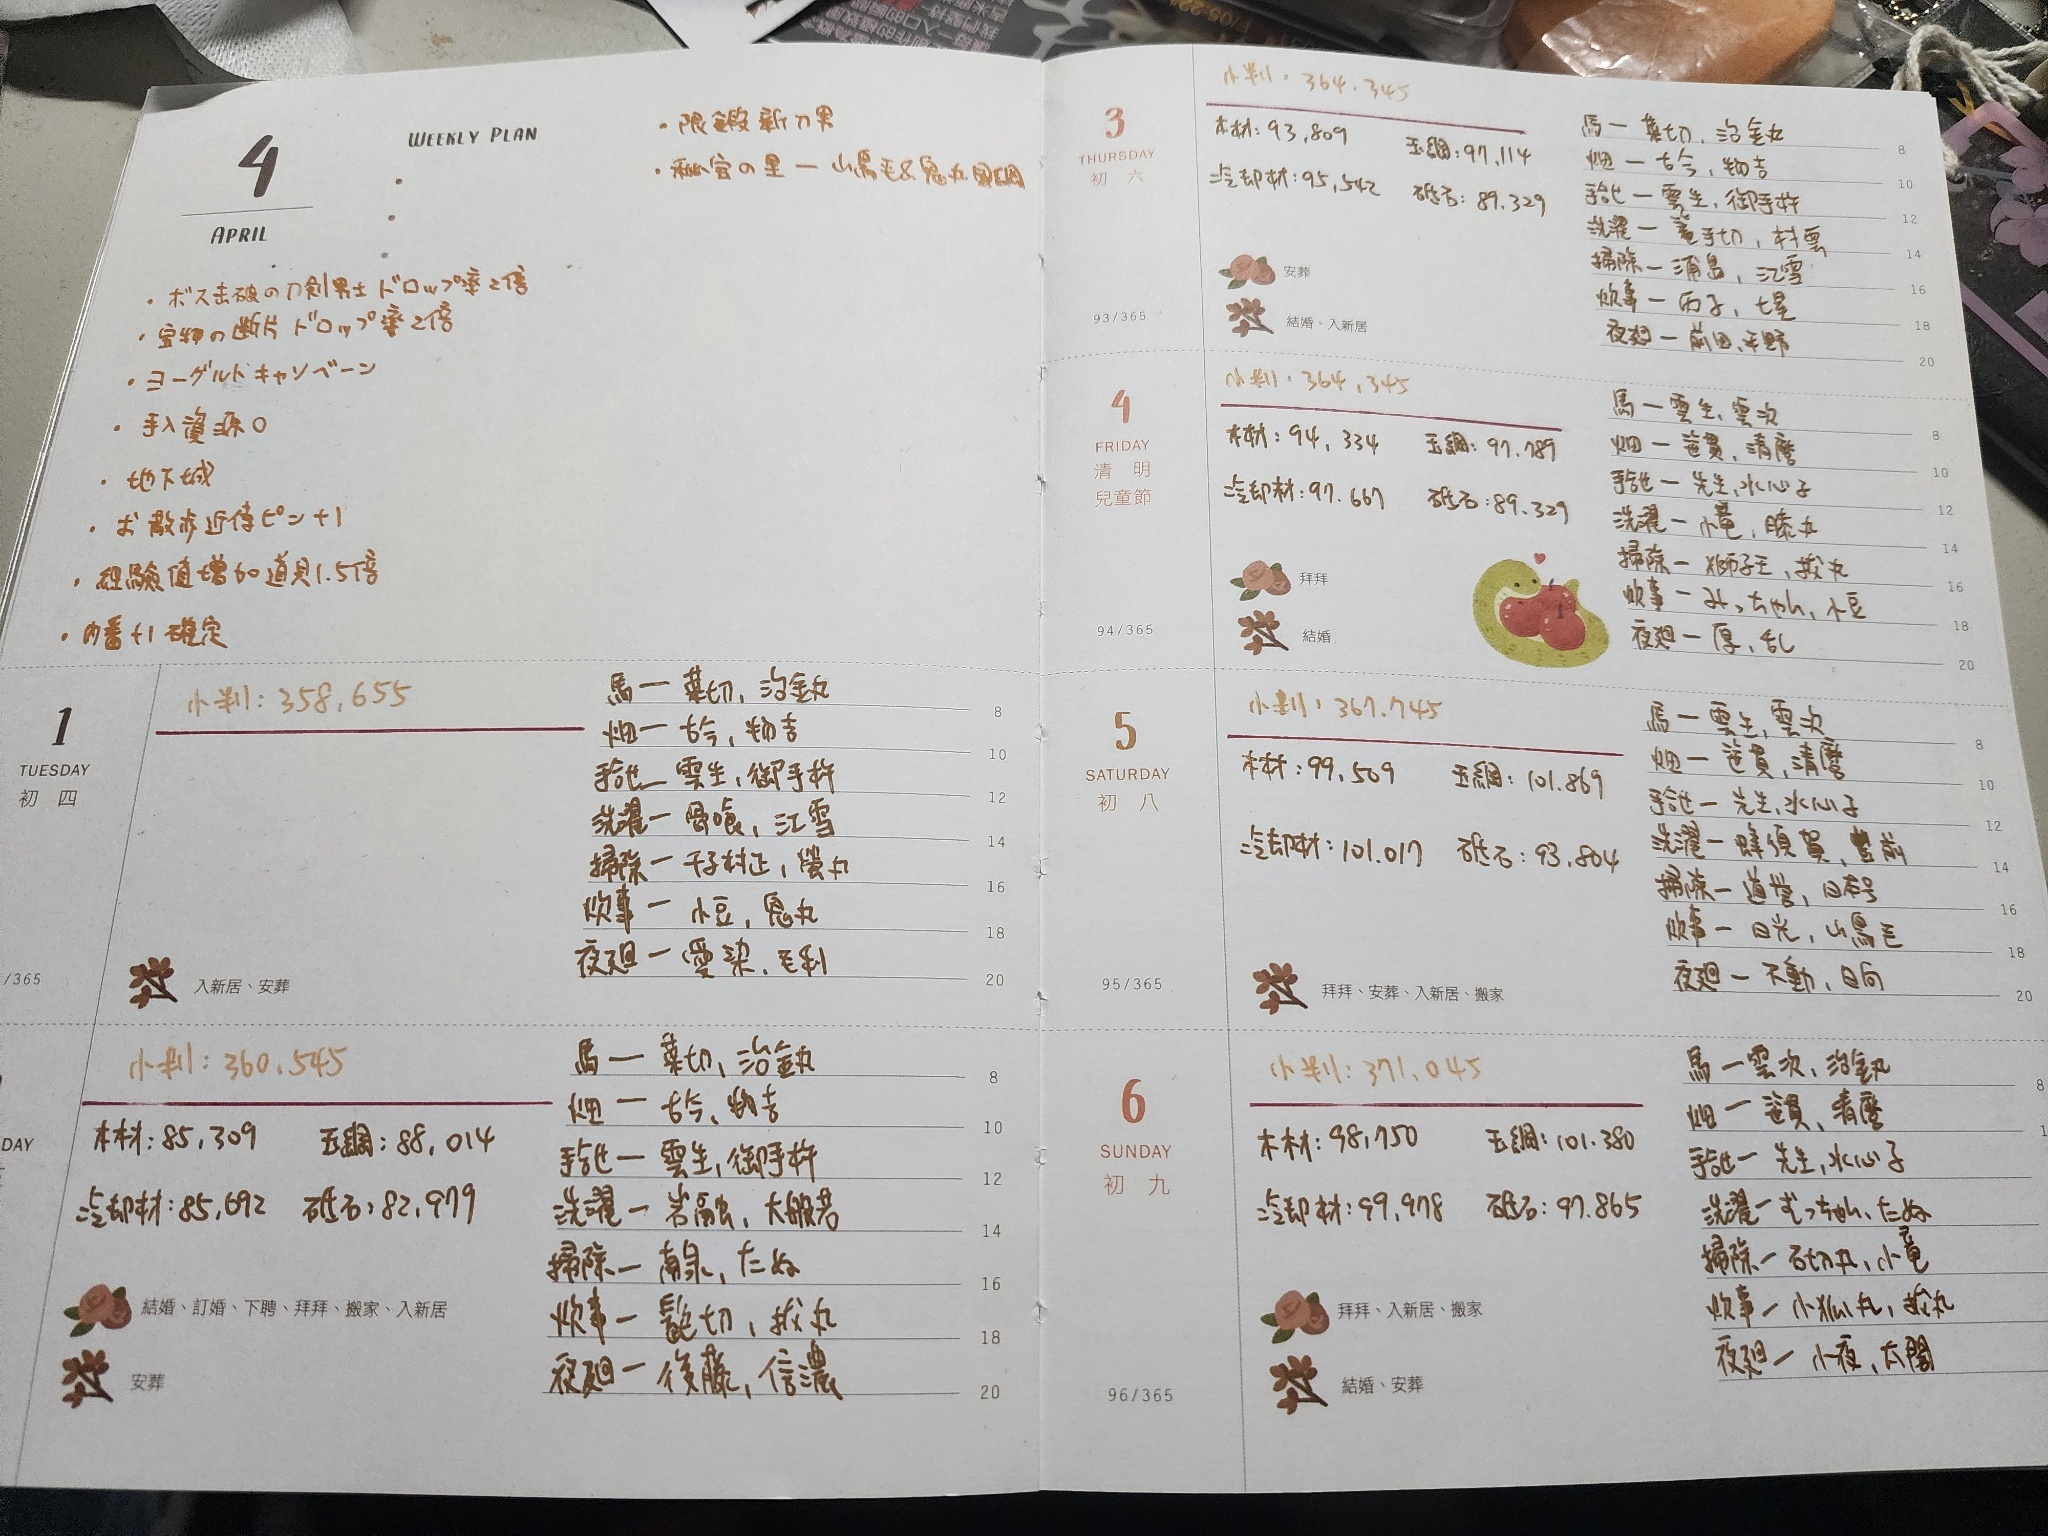 4
APRIL
WEEKLY PLAN
・限鍛新刀男
・秘宝の里ー山鳥毛&鬼丸国綱
・ボス击破の刀剣男士ドロップ率2倍
・宝物の断片ドロップ率2倍
・ヨーグルトキャンペーン
・手入資源0
・地下城
・お散歩近侍ピン+1
・経験値増加道具1.5倍
・内番+1確定
1
TUESDAY
初四
/365
小判:358,655
馬ー葉切,治金丸
畑ー古今,物吉
手合せー雲生,御手杵
洗濯ー骨喰,江雪
掃除ー千子村正,螢丸
炊事ー小豆,鬼丸
夜廻ー愛染,毛利
入新居、安葬
8
10
12
14
16
18
20
DAY
小判:360,545
木材:85,309 玉鋼:88,014
冷却材:85,692 砥石:82,979
馬ー葉切,治金丸
畑ー古今,物吉
手合せー雲生,御手杵
洗濯ー岩融,大般若
掃除ー南泉,たぬ
炊事ー髭切,拔丸
夜廻ー後藤,信濃
結婚、訂婚、下聘、拜拜、搬家、入新居
安葬
8
10
12
14
16
18
20
3
THURSDAY
初六
93/365
小判:364,345
木材:93,809 玉鋼:97,114
冷却材:95,542 砥石:89,329
馬ー葉切,治金丸
畑ー古今,物吉
手合せー雲生,御手杵
洗濯ー篭手切,村雲
掃除ー浦島,江雪
炊事ー丙子,七星
夜廻ー前田,平野
安葬
結婚、入新居
8
10
12
14
16
18
20
4
FRIDAY
清明
兒童節
94/365
小判:364,345
木材:94,334 玉鋼:97,789
冷却材:97,667 砥石:89,329
馬ー雲生,雲次
畑ー笹貫,清麿
手合せー先生,水心子
洗濯ー小竜,膝丸
掃除ー獅子王,拔丸
炊事ーみっちゃん,小豆
夜廻ー厚,乱
拜拜
結婚
8
10
12
14
16
18
20
5
SATURDAY
初八
95/365
小判:367,745
木材:99,509 玉鋼:101,869
冷却材:101,017 砥石:93,804
馬ー雲生,雲次
畑ー笹貫,清麿
手合せー先生,水心子
洗濯ー蜂須賀,豊前
掃除ー道誉,日本号
炊事ー日光,山鳥毛
夜廻ー不動,日向
拜拜、安葬、入新居、搬家
8
10
12
14
16
18
20
6
SUNDAY
初九
96/365
小判:371,045
木材:98,750 玉鋼:101,380
冷却材:99,978 砥石:97,865
馬ー雲次,治金丸
畑ー笹貫,清麿
手合せー先生,水心子
洗濯ーむっちゃん,たぬ
掃除ー石切丸,小竜
炊事ー小狐丸,拔丸
夜廻ー小夜,太閤
拜拜、入新居、搬家
結婚、安葬
8